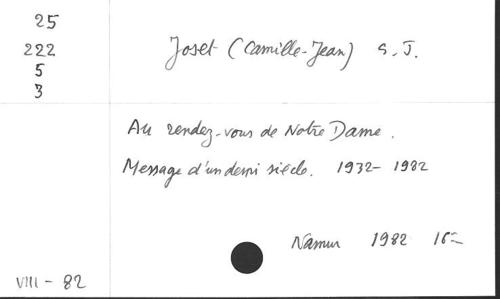 25
222
5
3
Joset (Camille-Jean) S.J.
Au rendez-vous de Notre Dame.
Message d'un demi siècle. 1932- 1982
Namur 1982 16-
VIII - 82